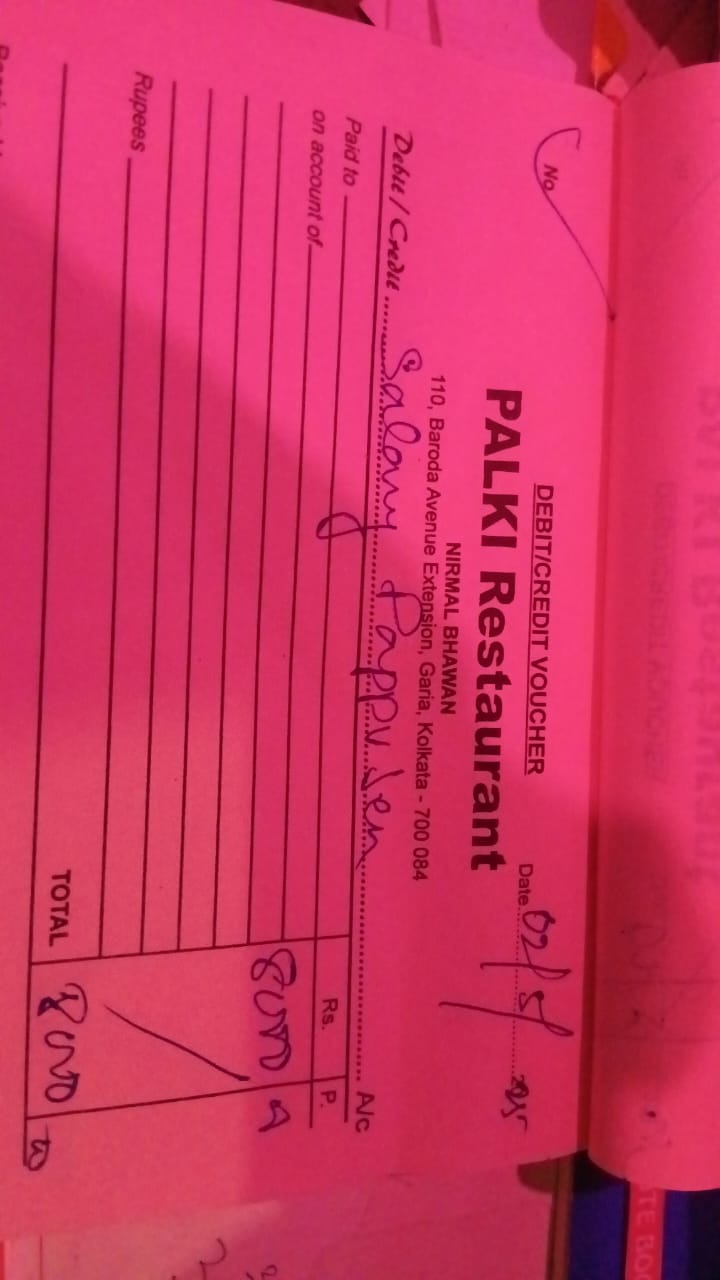 DEBIT/CREDIT VOUCHER
No.
Date 02/5/ 2025
PALKI Restaurant
NIRMAL BHAWAN
110, Baroda Avenue Extension, Garia, Kolkata - 700 084
Debit / Credit Salary Pappu Sen A/c
Paid to
on account of
Rs. P.
8000
Rupees
TOTAL 8000
TE BO